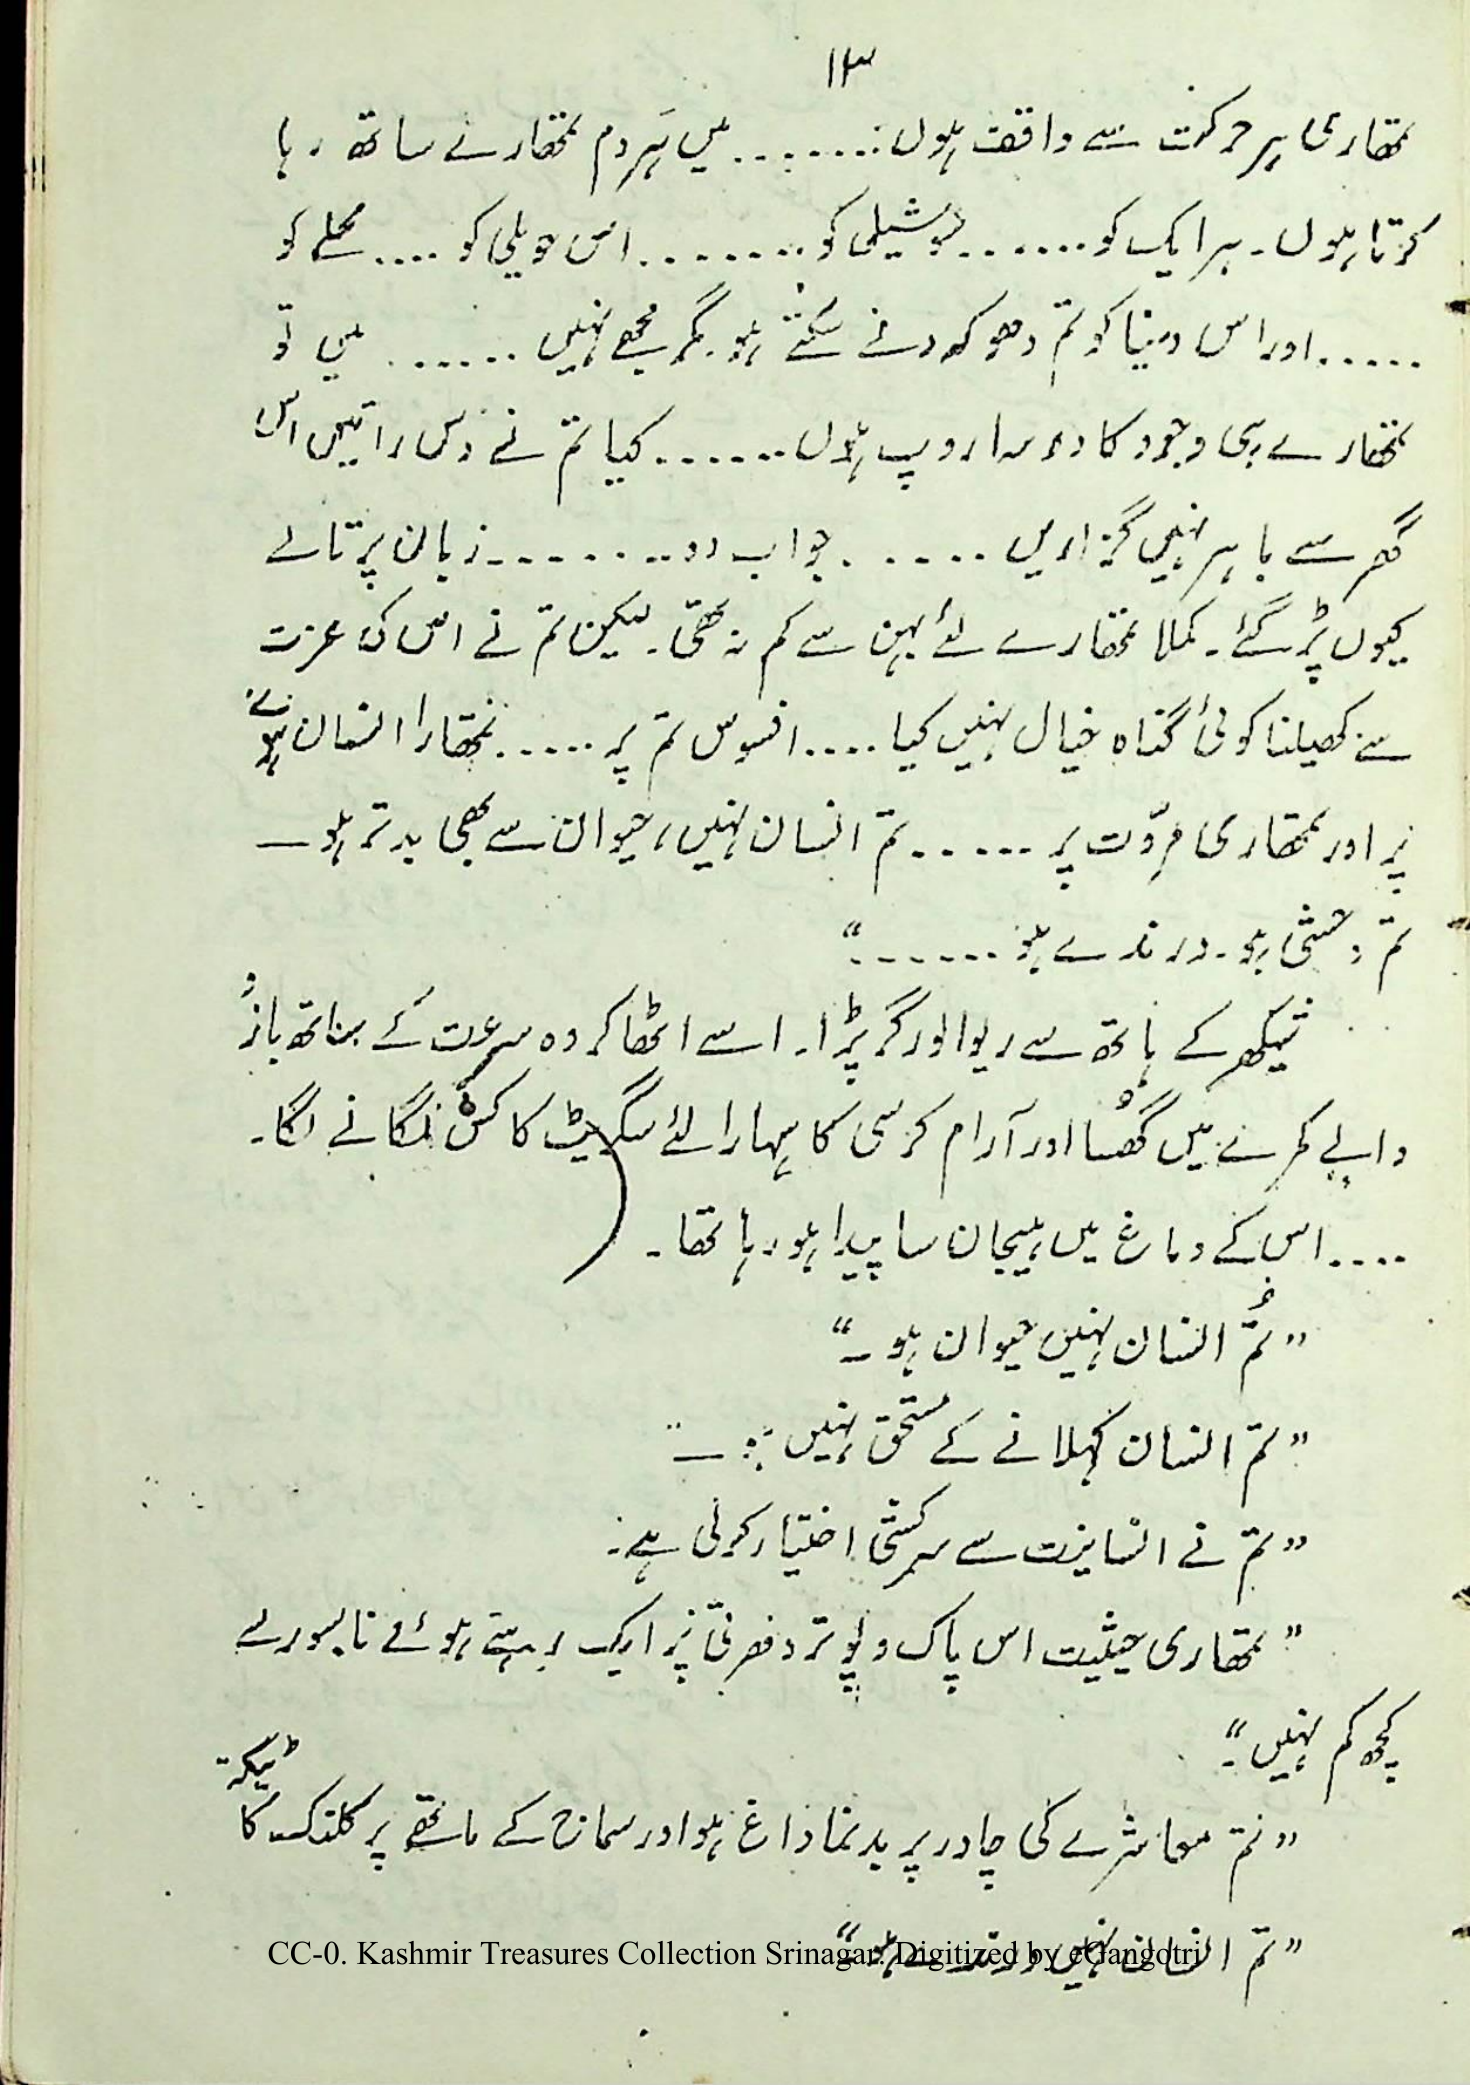 ۱۳
تمھاری ہر حرکت سے واقف ہوں ........ میں ہر دم تمھارے ساتھ رہا
کرتا ہوں۔ ہر ایک کو ...... سوشیلی کو ........ اس حویلی کو .... محلے کو
..... اور اس دنیا کو تم دھوکہ دے سکتے ہو۔ مگر مجھے نہیں ...... میں تو
تمھارے ہی وجود کا دوسرا روپ ہوں ...... کیا تم نے دس راتیں اس
گھر سے باہر نہیں گزاریں ...... جواب دو ........ زبان پر تالے
کیوں پڑ گئے۔ کملا تمھارے لئے بہن سے کم نہ تھی۔ لیکن تم نے اس کی عزت
سے کھیلنا کوئی گناہ خیال نہیں کیا .... افسوس تم پر ..... تمھارا انسان ہونے
پر اور تمھاری مروّت پر ..... تم انسان نہیں، حیوان سے بھی بدتر ہو ــ
تم وحشی ہو۔ درندے ہو ......“
شیکھر کے ہاتھ سے ریوالور گر پڑا۔ اسے اٹھا کر وہ سرعت کے ساتھ بازو
والے کمرے میں گھُسا اور آرام کرسی کا سہارا لئے سگریٹ کا کش لگانے لگا۔
.... اس کے دماغ میں ہیجان سا پیدا ہو رہا تھا۔
”تم انسان نہیں حیوان ہو ــ“
”تم انسان کہلانے کے مستحق نہیں ــ“
”تم نے انسانیت سے سرکشی اختیار کرلی ہے۔
”تمھاری حیثیت اس پاک و پوتر دھرتی پر ایک رستے ہوئے ناسور سے
کچھ کم نہیں۔“
”تم معاشرے کی چادر پر بدنما داغ ہو اور سماج کے ماتھے پر کلنک کا ٹیکہ
”تم انسان نہیں درندے ہو“
CC-0. Kashmir Treasures Collection Srinagar. Digitized by eGangotri